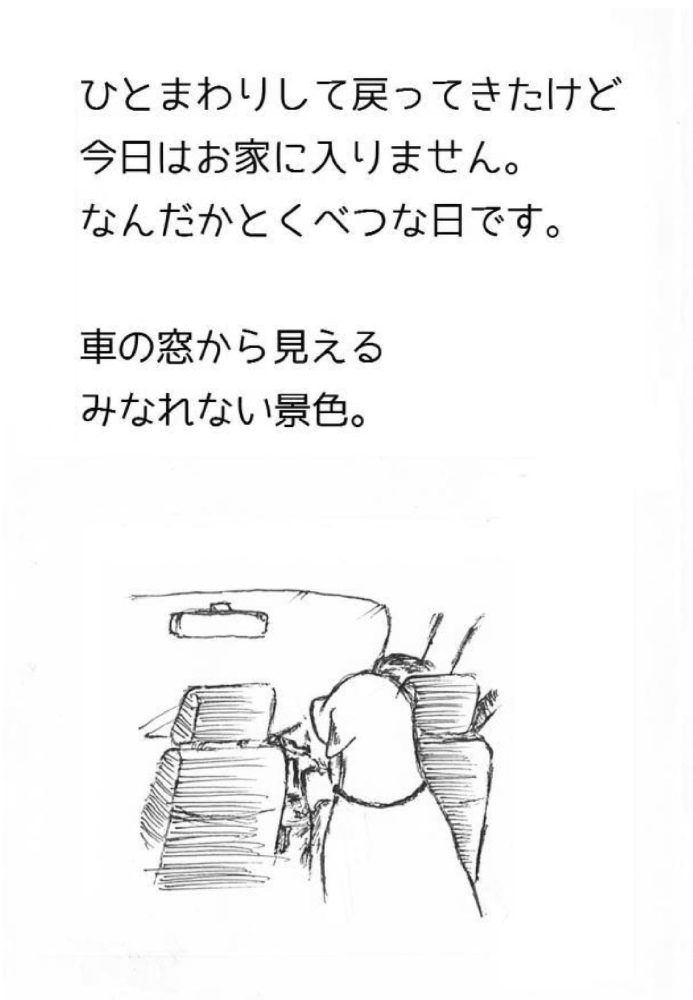 ひとまわりして戻ってきたけど
今日はお家に入りません。
なんだかとくべつな日です。
車の窓から見える
みなれない景色。